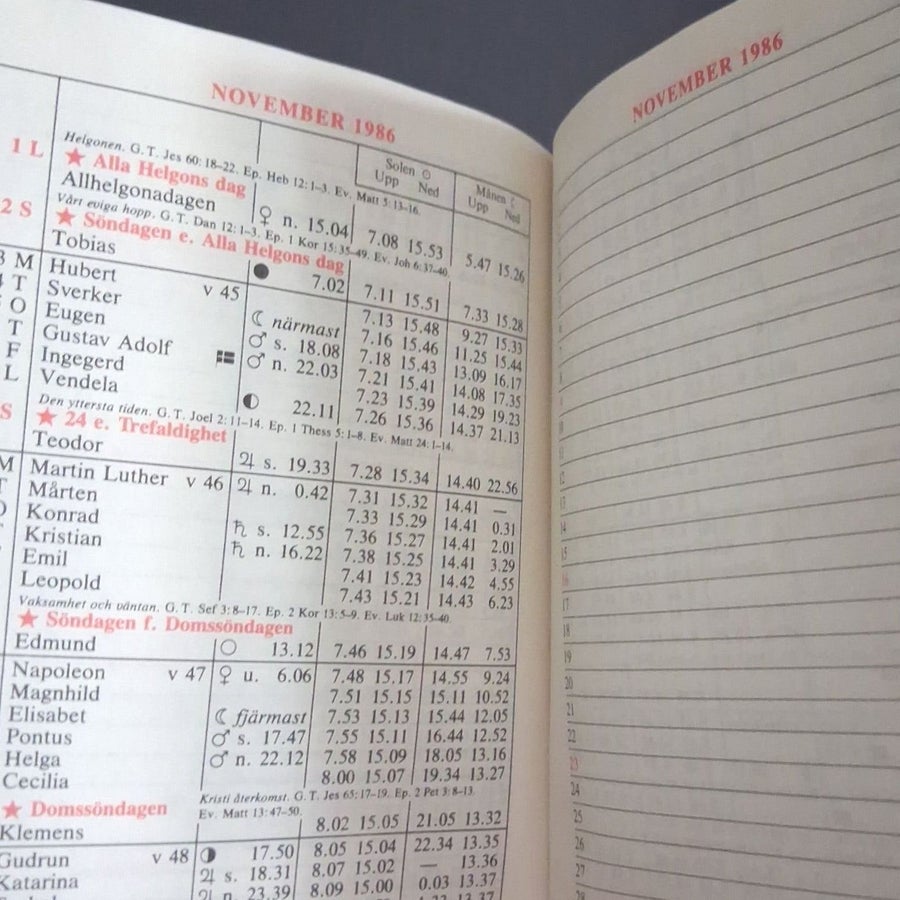 NOVEMBER 1986
Solen ☉ Månen ☾
Upp Ned Upp Ned
Helgonen. G. T. Jes 60: 18–22. Ep. Heb 12: 1–3. Ev. Matt 5: 13–16.
1 L ★ Alla Helgons dag
Allhelgonadagen ♀ n. 15.04 7.08 15.53 5.47 15.26
Vårt eviga hopp. G. T. Dan 12: 1–3. Ep. 1 Kor 15: 35–49. Ev. Joh 6: 37–40.
2 S ★ Söndagen e. Alla Helgons dag
Tobias ● 7.02 7.11 15.51 7.33 15.28
3 M Hubert v 45 7.13 15.48 9.27 15.33
4 T Sverker ☾ närmast 7.16 15.46 11.25 15.44
O Eugen ♂ s. 18.08 7.18 15.43 13.09 16.17
T Gustav Adolf ♂ n. 22.03 7.21 15.41 14.08 17.35
F Ingegerd 7.23 15.39 14.29 19.23
L Vendela ◐ 22.11 7.26 15.36 14.37 21.13
Den yttersta tiden. G. T. Joel 2: 11–14. Ep. 1 Thess 5: 1–8. Ev. Matt 24: 1–14.
S ★ 24 e. Trefaldighet
Teodor ♃ s. 19.33 7.28 15.34 14.40 22.56
M Martin Luther v 46 ♃ n. 0.42 7.31 15.32 14.41 —
T Mårten 7.33 15.29 14.41 0.31
Konrad ♄ s. 12.55 7.36 15.27 14.41 2.01
Kristian ♄ n. 16.22 7.38 15.25 14.41 3.29
Emil 7.41 15.23 14.42 4.55
Leopold 7.43 15.21 14.43 6.23
Vaksamhet och väntan. G. T. Sef 3: 8–17. Ep. 2 Kor 13: 5–9. Ev. Luk 12: 35–40.
★ Söndagen f. Domssöndagen
Edmund ○ 13.12 7.46 15.19 14.47 7.53
Napoleon v 47 ♀ u. 6.06 7.48 15.17 14.55 9.24
Magnhild 7.51 15.15 15.11 10.52
Elisabet ☾ fjärmast 7.53 15.13 15.44 12.05
Pontus ♂ s. 17.47 7.55 15.11 16.44 12.52
Helga ♂ n. 22.12 7.58 15.09 18.05 13.16
Cecilia 8.00 15.07 19.34 13.27
Kristi återkomst. G. T. Jes 65: 17–19. Ep. 2 Pet 3: 8–13.
★ Domssöndagen Ev. Matt 13: 47–50.
Klemens 8.02 15.05 21.05 13.32
Gudrun v 48 ◑ 17.50 8.05 15.04 22.34 13.35
Katarina ♃ s. 18.31 8.07 15.02 — 13.36
♃ n. 23.39 8.09 15.00 0.03 13.37
NOVEMBER 1986
12
13
14
15
16
17
18
19
20
21
22
23
24
25
26
27
28